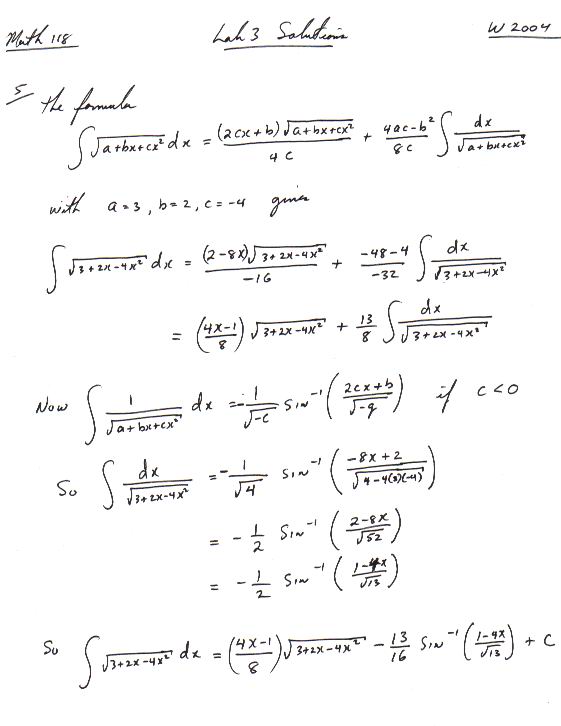 Math 118 Lab 3 Solutions W 2004
5 The formula
∫ √(a+bx+cx²) dx = (2cx+b)√(a+bx+cx²) / 4c + (4ac-b²)/8c ∫ dx/√(a+bx+cx²)
with a=3, b=2, c=-4 gives
∫ √(3+2x-4x²) dx = (2-8x)√(3+2x-4x²) / -16 + (-48-4)/-32 ∫ dx/√(3+2x-4x²)
= ((4x-1)/8) √(3+2x-4x²) + 13/8 ∫ dx/√(3+2x-4x²)
Now ∫ 1/√(a+bx+cx²) dx = -1/√-c Sin⁻¹((2cx+b)/√-q) if c<0
So ∫ dx/√(3+2x-4x²) = -1/√4 Sin⁻¹((-8x+2)/√(4-4(3)(-4)))
= -1/2 Sin⁻¹((2-8x)/√52)
= -1/2 Sin⁻¹((1-4x)/√13)
So ∫ √(3+2x-4x²) dx = ((4x-1)/8)√(3+2x-4x²) - 13/16 Sin⁻¹((1-4x)/√13) + C